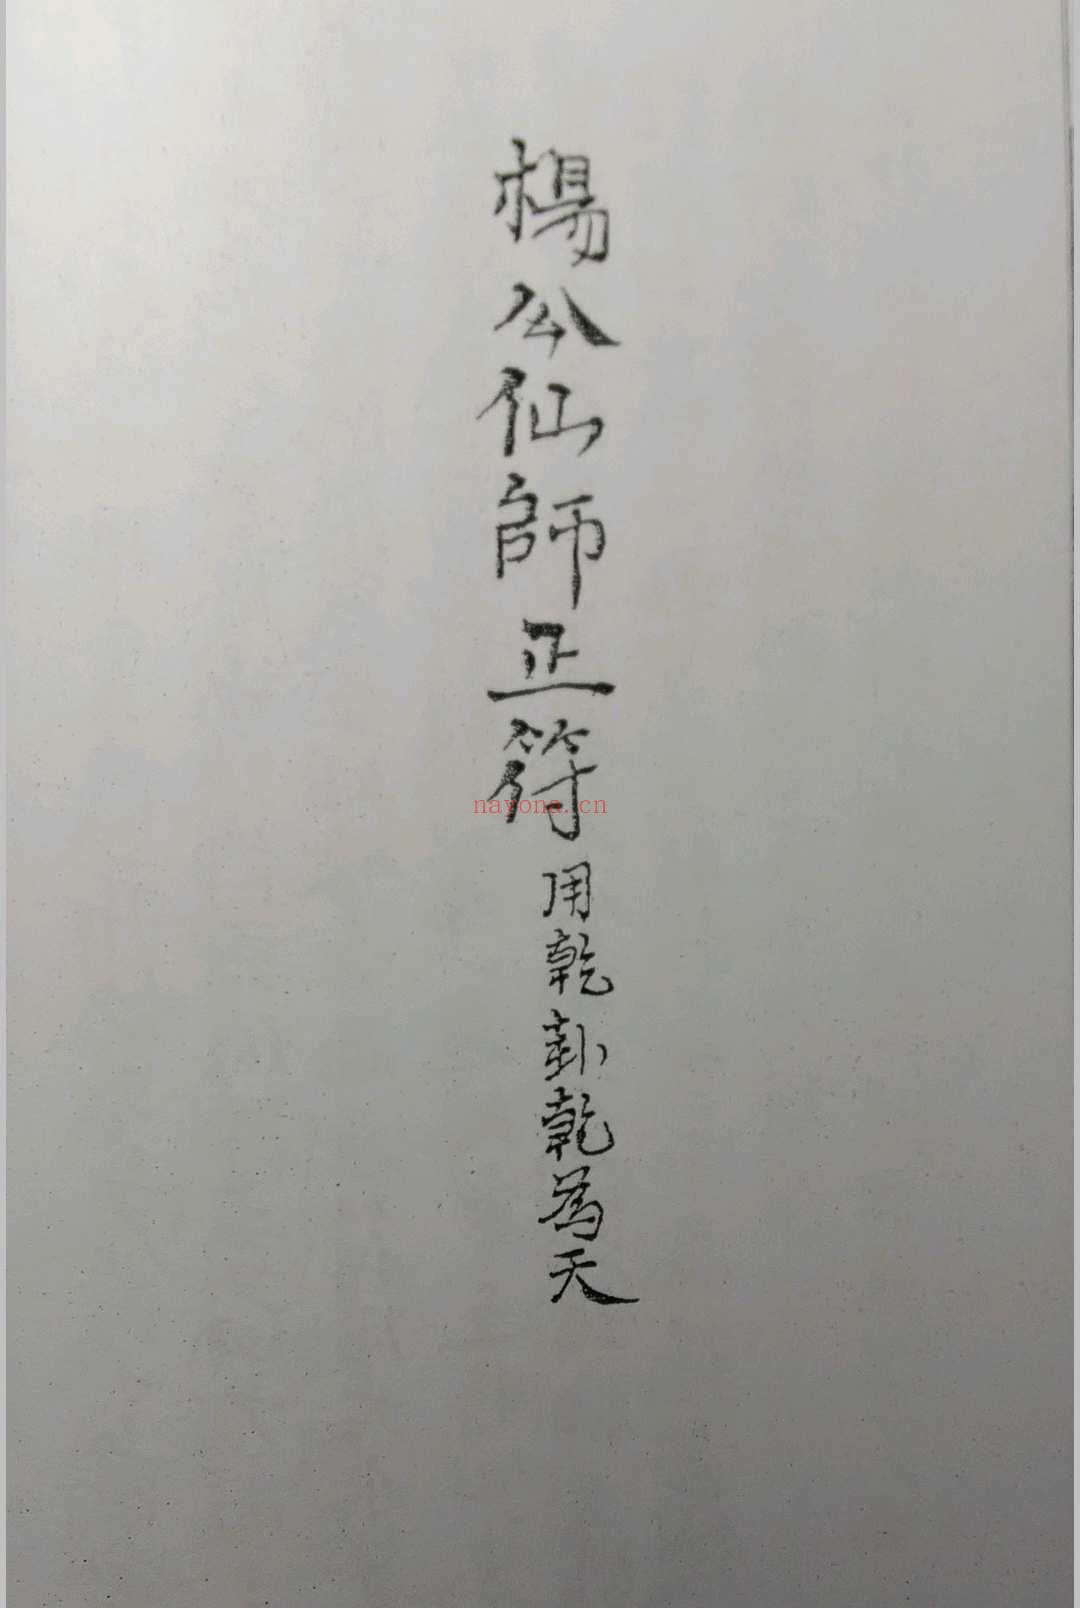 楊公仙師正符用乾卦乾為天
nayona.cn